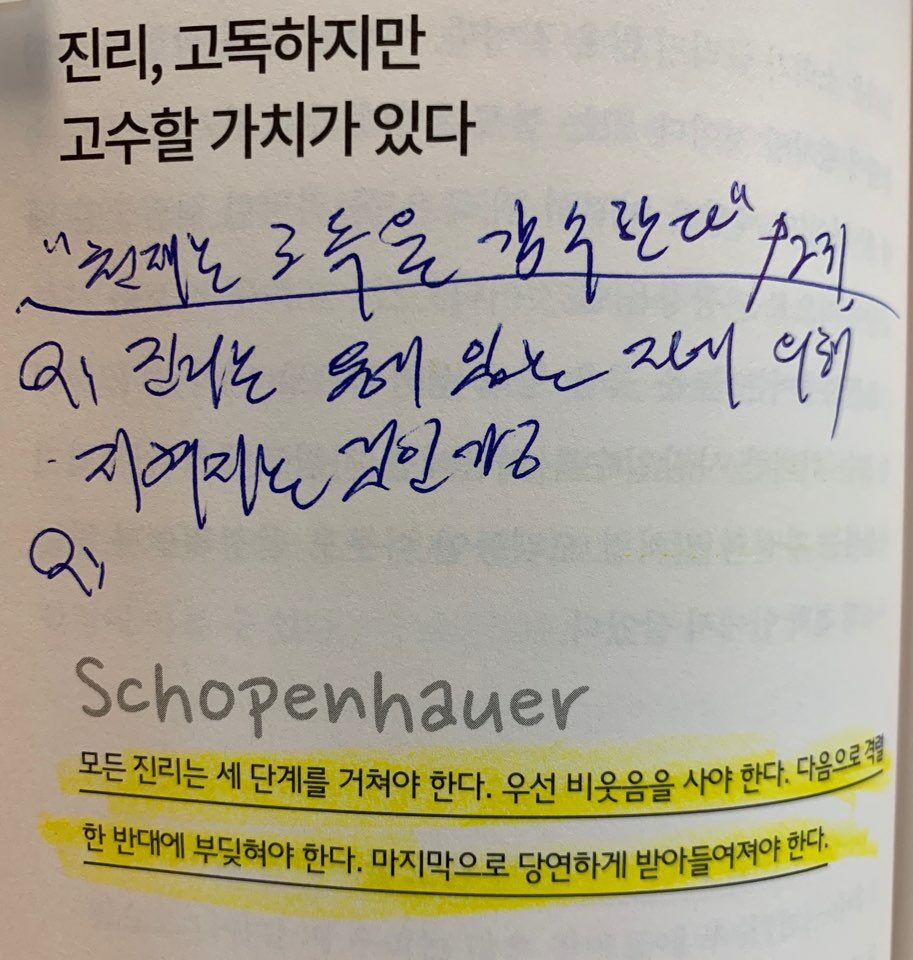 진리, 고독하지만
고수할 가치가 있다
"천재는 고독을 감수한다"
Q1 진리는 용기 있는 자에 의해
지어지는 것인가?
Q1
Schopenhauer
모든 진리는 세 단계를 거쳐야 한다. 우선 비웃음을 사야 한다. 다음으로 격렬
한 반대에 부딪혀야 한다. 마지막으로 당연하게 받아들여져야 한다.